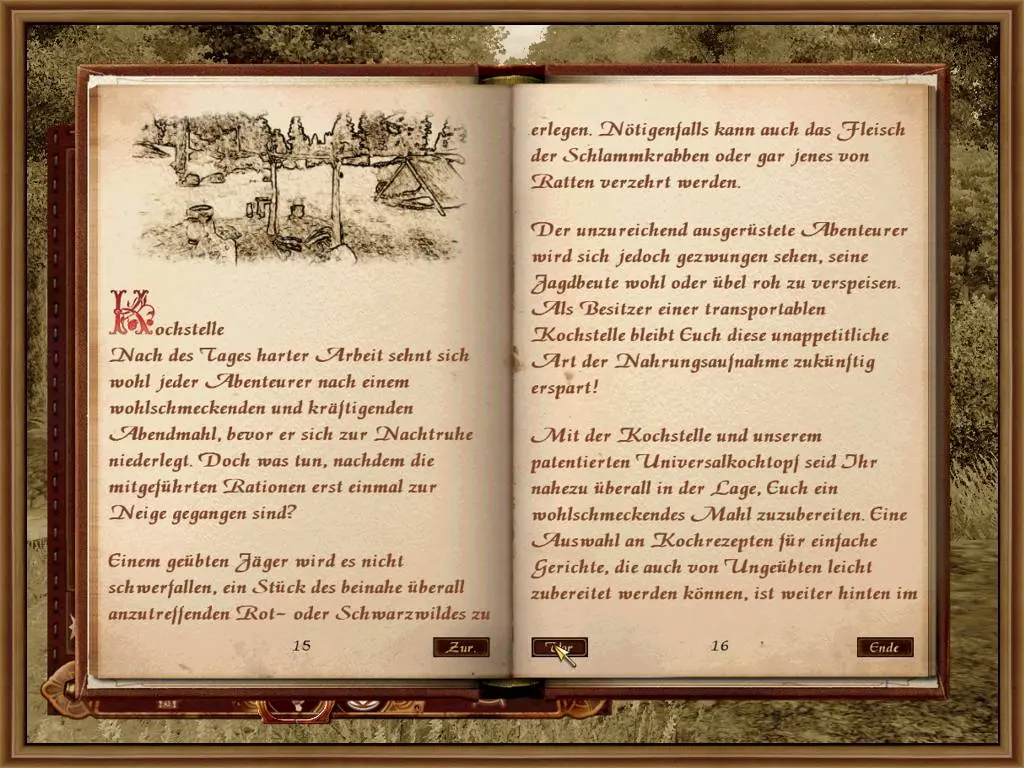 Kochstelle
Nach des Tages harter Arbeit sehnt sich
wohl jeder Abenteurer nach einem
wohlschmeckenden und kräftigenden
Abendmahl, bevor er sich zur Nachtruhe
niederlegt. Doch was tun, nachdem die
mitgeführten Rationen erst einmal zur
Neige gegangen sind?
Einem geübten Jäger wird es nicht
schwerfallen, ein Stück des beinahe überall
anzutreffenden Rot- oder Schwarzwildes zu
15
Zur.
erlegen. Nötigenfalls kann auch das Fleisch
der Schlammkrabben oder gar jenes von
Ratten verzehrt werden.
Der unzureichend ausgerüstete Abenteurer
wird sich jedoch gezwungen sehen, seine
Jagdbeute wohl oder übel roh zu verspeisen.
Als Besitzer einer transportablen
Kochstelle bleibt Euch diese unappetitliche
Art der Nahrungsaufnahme zukünftig
erspart!
Mit der Kochstelle und unserem
patentierten Universalkochtopf seid Ihr
nahezu überall in der Lage, Euch ein
wohlschmeckendes Mahl zuzubereiten. Eine
Auswahl an Kochrezepten für einfache
Gerichte, die auch von Ungeübten leicht
zubereitet werden können, ist weiter hinten im
16
Ende